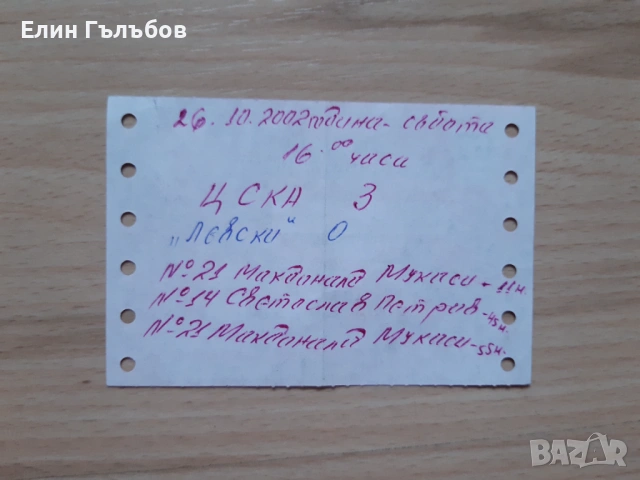 Елин Гълъбов
26.10.2002 година - събота
16.00 часи
ЦСКА 3
"Левски" 0
№21 Макдоналд Мукаси - 11 м.
№14 Светослав Петров - 45 м.
№21 Макдоналд Мукаси - 55 м.
BAZAR